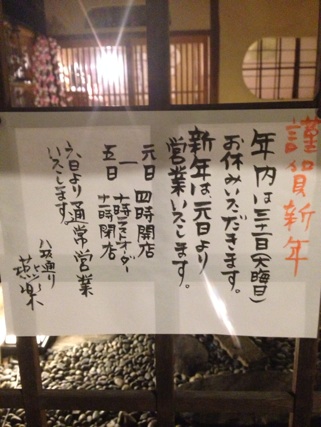 謹賀新年
年内は三十一日(大晦日)
お休みいただきます。
新年は元日より
営業いたします。
元日 四時開店
〜 十時ラストオーダー
五日 十一時閉店
六日より通常営業
いたします。
八坂通り
燕楽